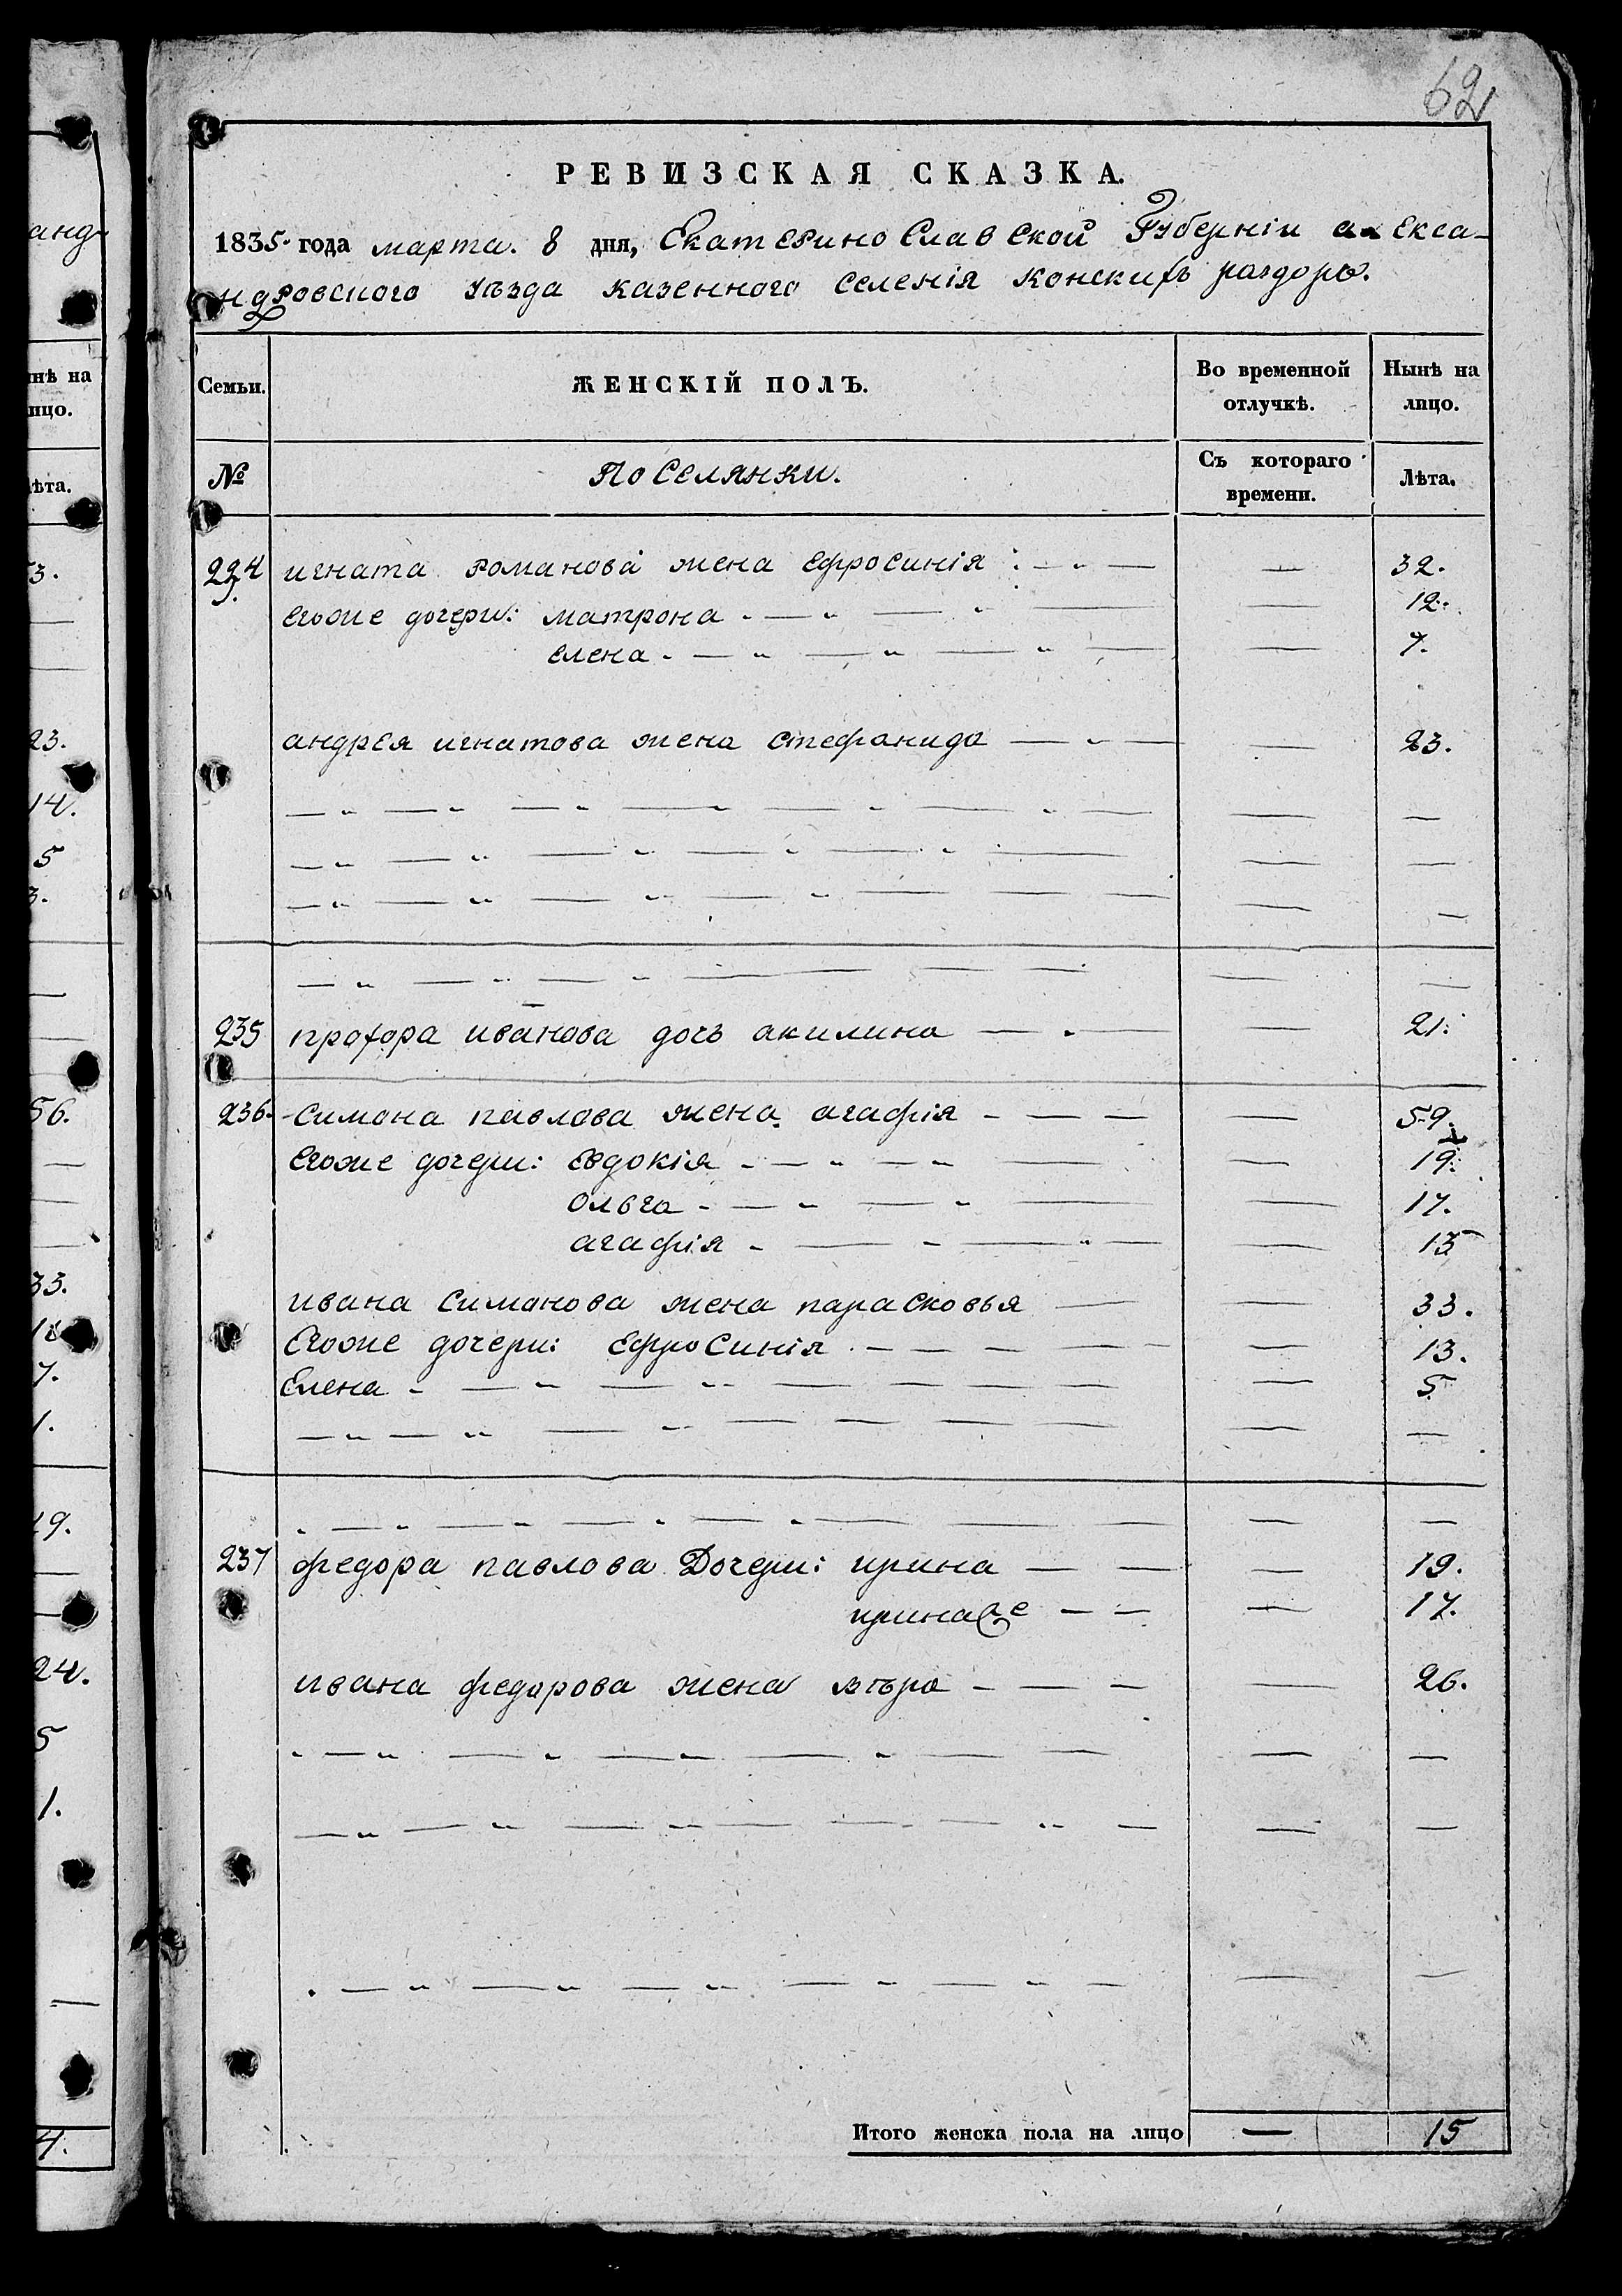 анд
нѣ на
ицо.
ѣта.
3.
23.
14.
5
3.
56.
33.
7.
1.
19.
24.
5
1.
4.
62
РЕВИЗСКАЯ СКАЗКА.
1835. года марта. 8 дня, Екатеринославской Губерніи алекса-
ндровского уѣзда казенного селенія конскихъ раздоръ.
Семьи. ЖЕНСКІЙ ПОЛЪ. Во временной отлучкѣ. Нынѣ на лицо.
№ поселянки. Съ котораго времени. Лѣта.
234 игната романова жена ефросинія — 32.
егоже дочери: матрона — 12.
елена — 7.
андрея игнатова жена стефанида — 23.
235 прохора иванова дочь акилина — 21.
236. симона павлова жена агафія — 59.
егоже дочери: евдокія — 19.
ольга — 17.
агафія — 13
ивана симонова жена парасковья — 33.
егоже дочери: ефросинія — 13.
елена — 5
237 федора павлова дочери: ирина — 19.
ирина же — 17.
ивана федорова жена вѣра — 26.
Итого женска пола на лицо — 15